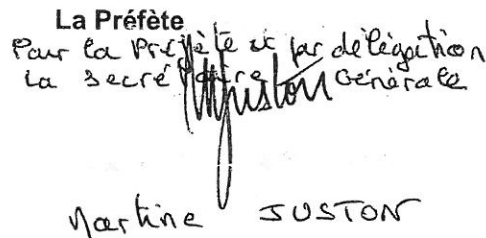 La Préfète
Pour la Préfète et par délégation
La Secrétaire Générale
MJuston
Martine JUSTON